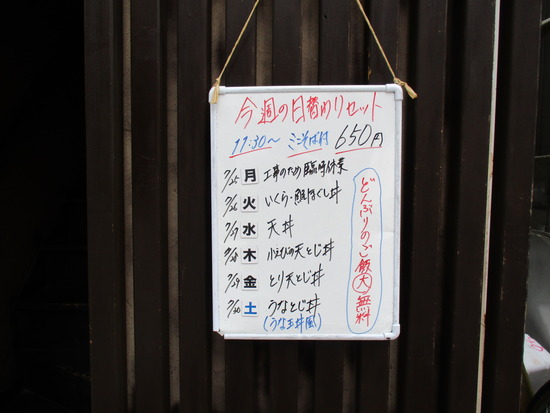 今週の日替わりセット
11:30〜 ミニそば付 650円
7/25 月 工事のため臨時休業
7/26 火 いくら・鮭ほぐし丼
7/27 水 天丼
7/28 木 小えびの天とじ丼
7/29 金 とり天とじ丼
7/30 土 うなとじ丼
(うな玉丼風)
どんぶりのご飯大無料